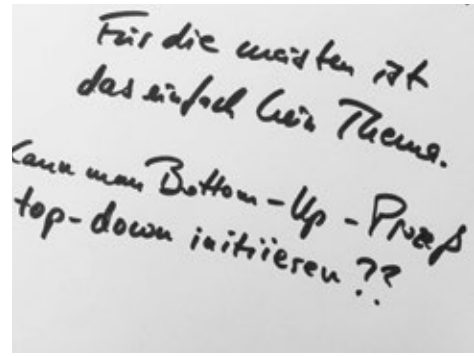 Für die meisten ist
das einfach kein Thema.
Kann man Bottom-Up-Prozeß
top-down initiieren??